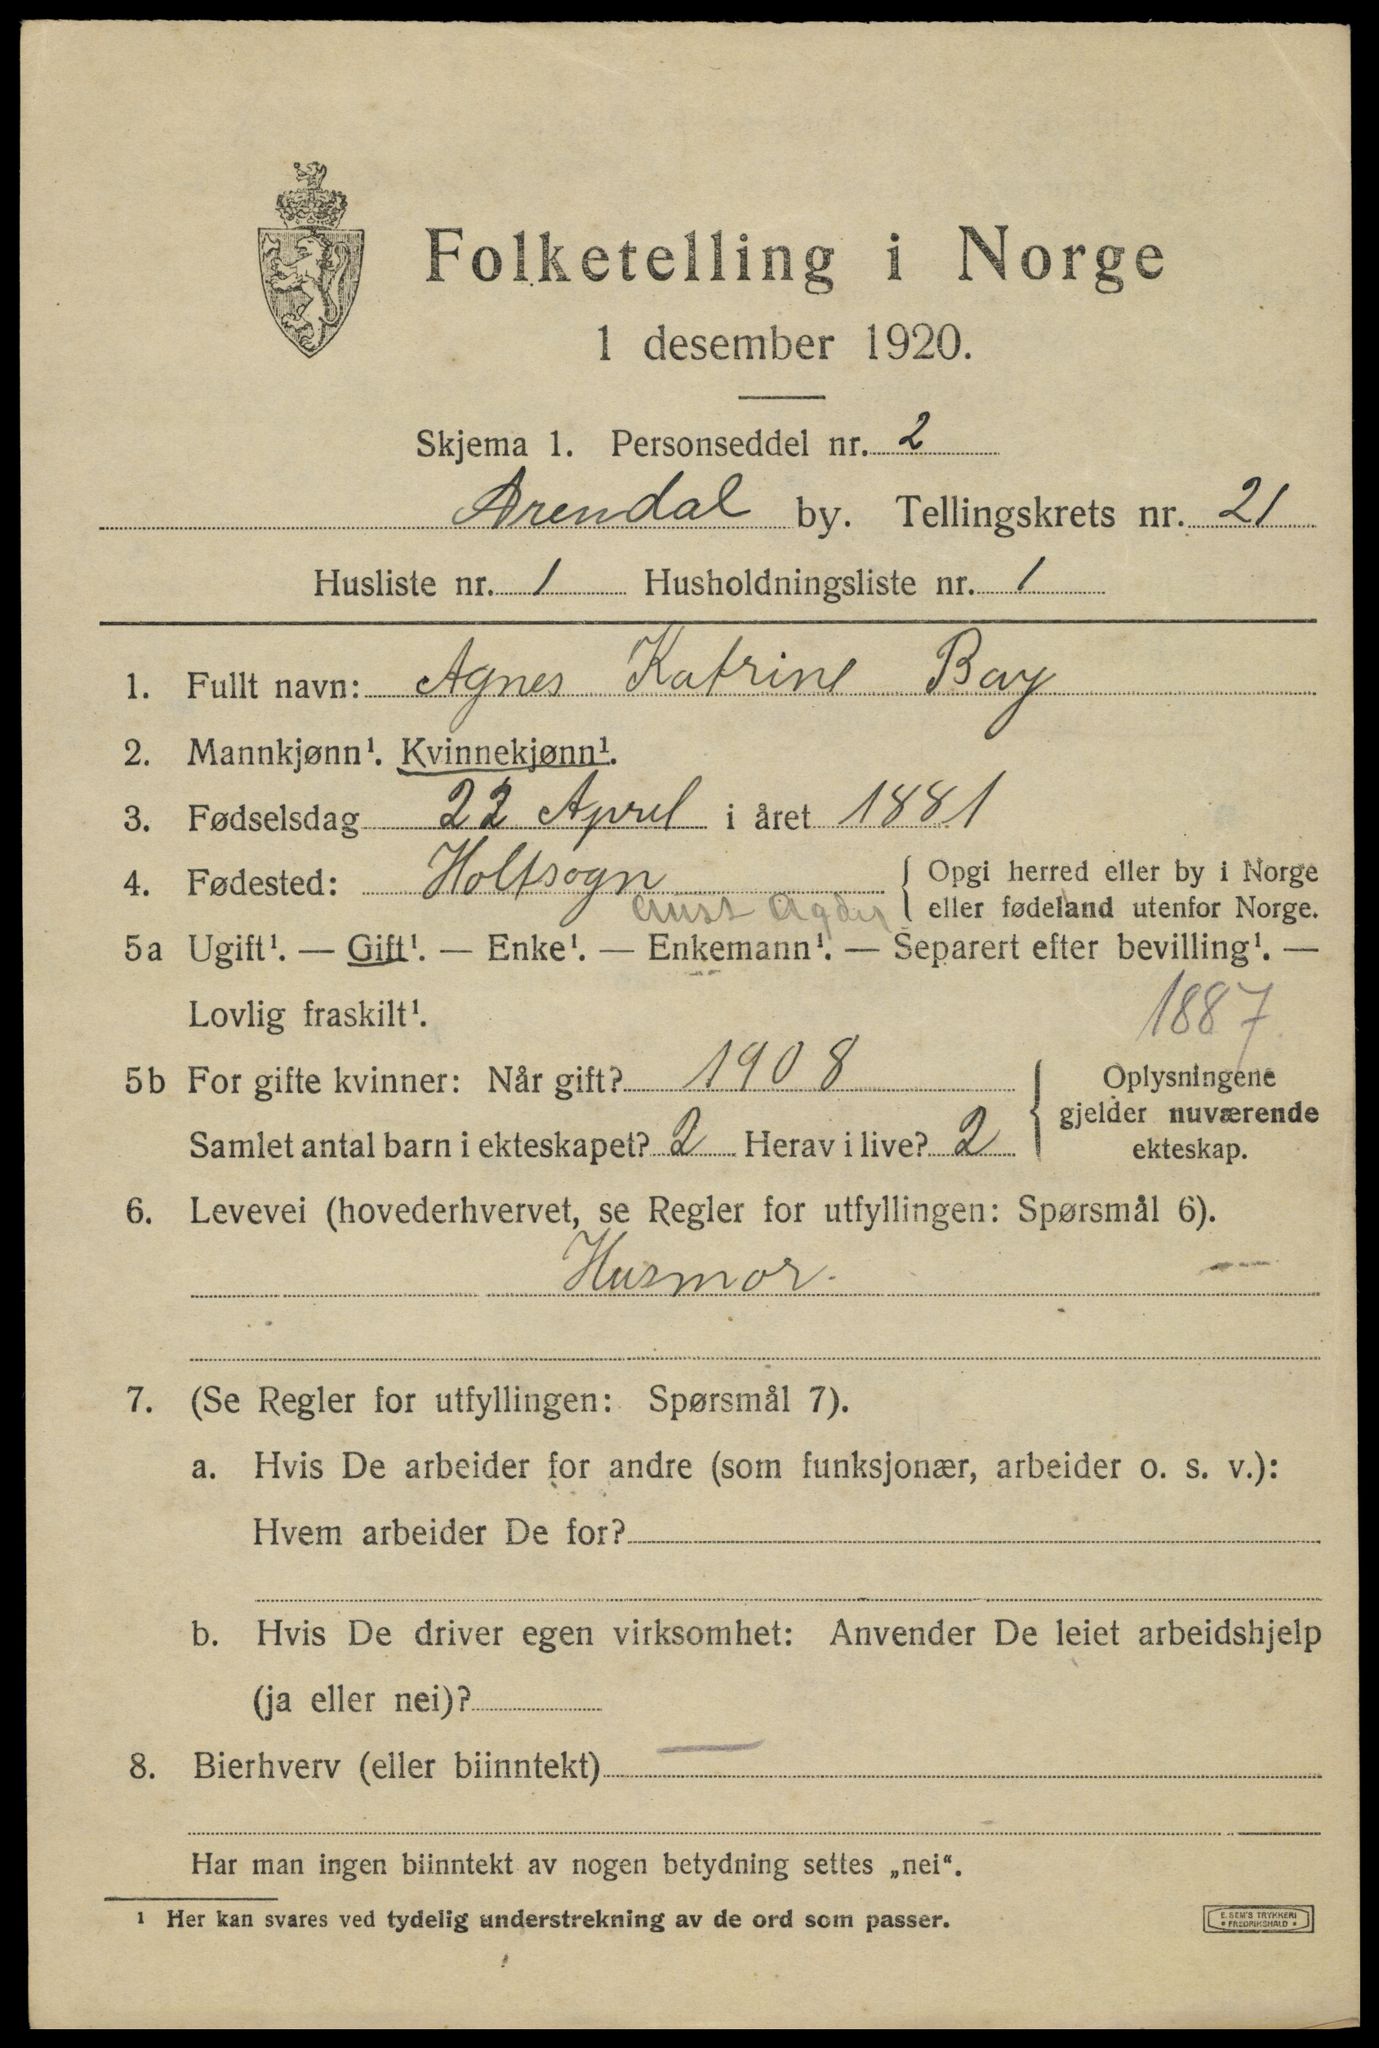 Folketelling i Norge
1 desember 1920.
Skjema 1. Personseddel nr. 2
Arendal by. Tellingskrets nr. 21
Husliste nr. 1 Husholdningsliste nr. 1
1. Fullt navn: Agnes Katrine Bay
2. Mannkjønn¹. Kvinnekjønn¹.
3. Fødselsdag 22 April i året 1881
4. Fødested: Holtsogn { Opgi herred eller by i Norge
Aust Agder eller fødeland utenfor Norge.
5a Ugift¹. — Gift¹. — Enke¹. — Enkemann¹. — Separert efter bevilling¹. —
Lovlig fraskilt¹. 1887
5b For gifte kvinner: Når gift? 1908 { Oplysningene
gjelder nuværende
Samlet antal barn i ekteskapet? 2 Herav i live? 2 ekteskap.
6. Levevei (hovederhvervet, se Regler for utfyllingen: Spørsmål 6).
Husmor.
7. (Se Regler for utfyllingen: Spørsmål 7).
a. Hvis De arbeider for andre (som funksjonær, arbeider o. s. v.):
Hvem arbeider De for?
b. Hvis De driver egen virksomhet: Anvender De leiet arbeidshjelp
(ja eller nei)?
8. Bierhverv (eller biinntekt) —
Har man ingen biinntekt av nogen betydning settes „nei“.
¹ Her kan svares ved tydelig understrekning av de ord som passer.
E. SEM'S TRYKKERI
• FREDRIKSHALD •